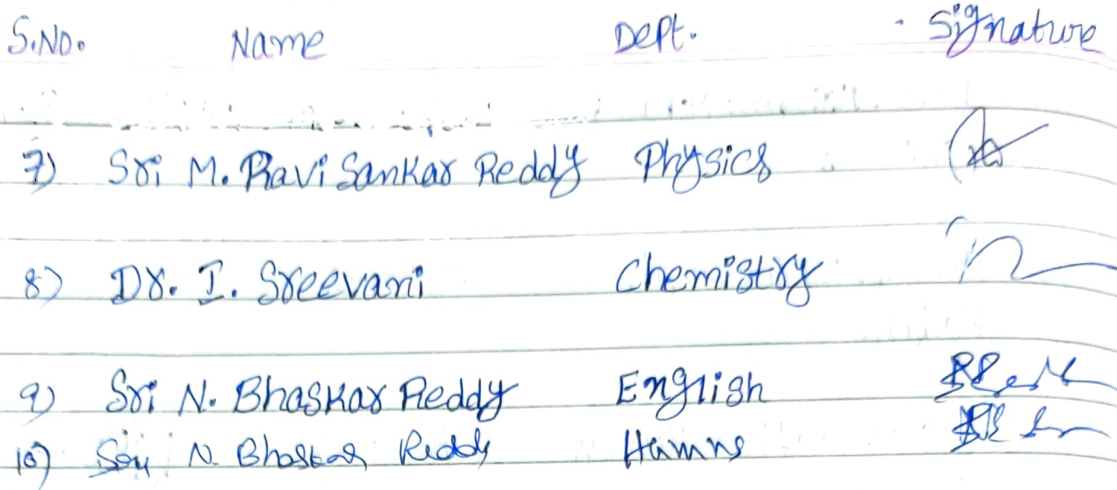 S.No. Name Dept. Signature
7) Sri M. Ravi Sankar Reddy Physics
8) Dr. I. Sreevani Chemistry
9) Sri N. Bhaskar Reddy English
10) Sri N. Bhaskar Reddy